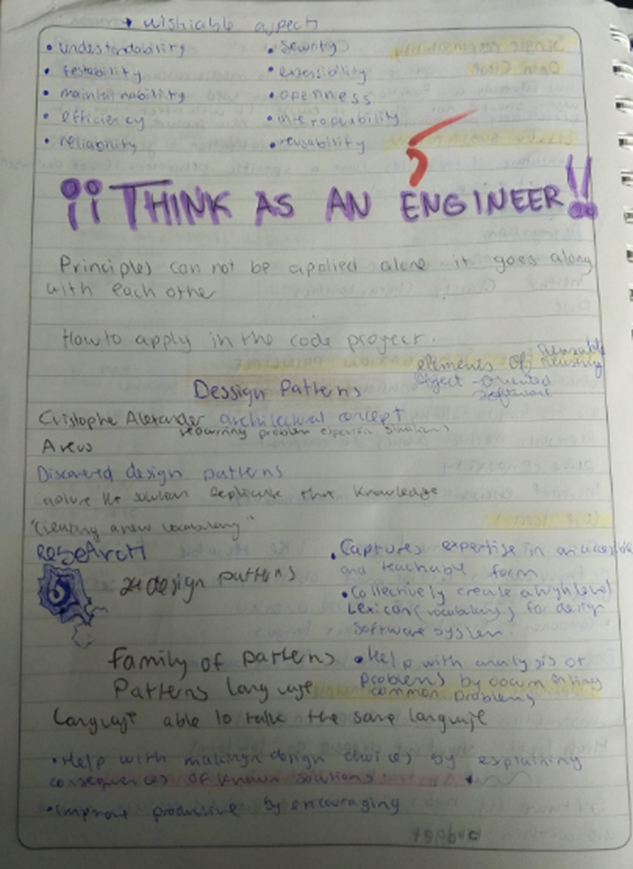 → wishiable aspect
• understandability
• testability
• maintainability
• efficiency
• reliability
• Security
• extensibility
• openness
• interoperability
• reusability
¡¡THINK AS AN ENGINEER!!
Principles can not be applied alone it goes along
with each other
How to apply in the code project.
elements of Reusable
Object-oriented
software
Dessign Patterns
Cristophe Alexander architectural concept
recurring problem specific situations
Discovered design patterns
the knowledge
"Creating a new vocabulary"
RESEARCH
design patterns
• Captures expertise in an accesible
and teachable form
• Collectively create a high level
Lexicon (vocabulary) for design
software system.
Family of patterns
Patterns language
• Help with analysis of
problems by documenting
common problems
Language able to talk the same language
• Help with making design choices by explaining
consequences of known solutions
• Improve productive by encouraging